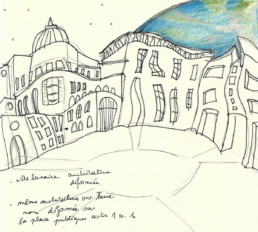 - ville lunaire architecture
déformée
- même architecture sur Terre
non déformée sur
la place publique acte 1 sc. 1